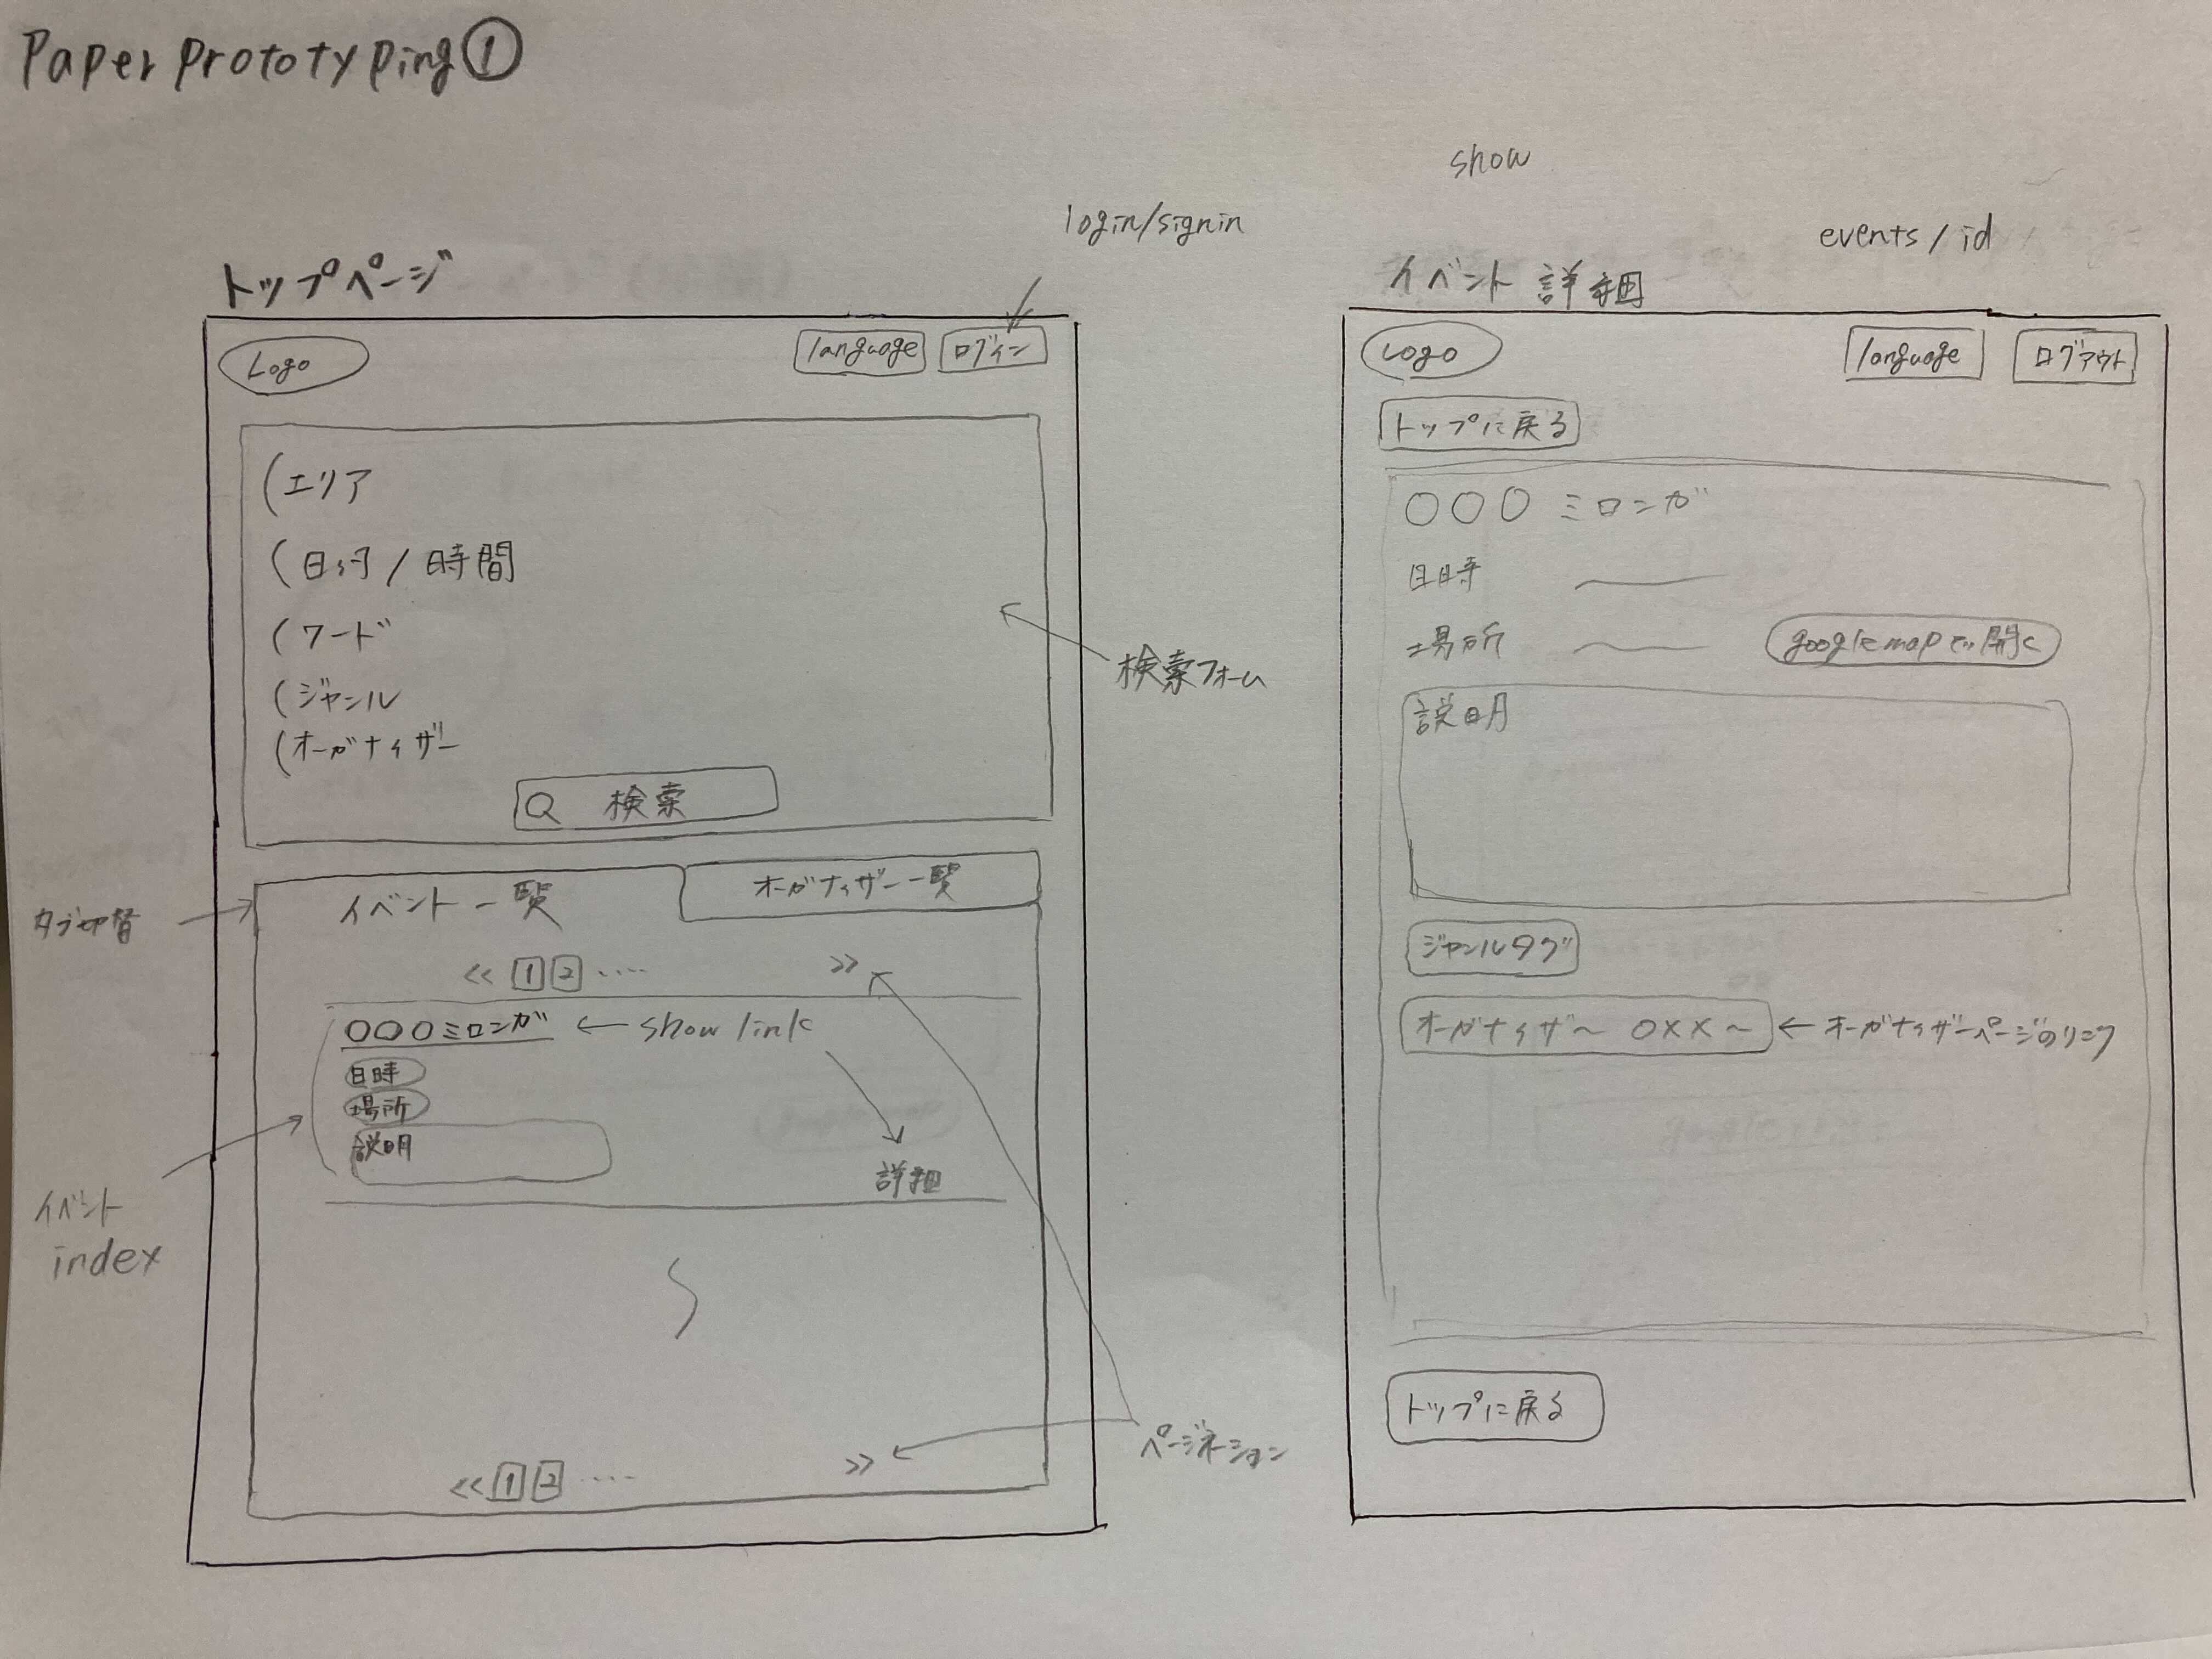 Paper Prototyping①
show
login/signin
events/id
トップページ
Logo
language
ログイン
(エリア
(日付/時間
(ワード
(ジャンル
(オーガナイザー
検索
検索フォーム
イベント一覧
オーガナイザー一覧
タブ切替
<< 1 2 ····· >>
○○○ミロンガ ← show link
日時
場所
説明
詳細
イベント
index
<< 1 2 ····· >>
ページネーション
イベント詳細
Logo
language
ログアウト
トップに戻る
○○○ ミロンガ
日時
場所
googlemapで開く
説明
ジャンルタグ
オーガナイザ〜 ○××〜 ← オーガナイザーページのリンク
トップに戻る